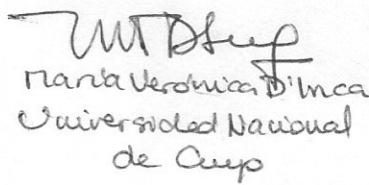 María Verónica D'Inca
Universidad Nacional
de Cuyo